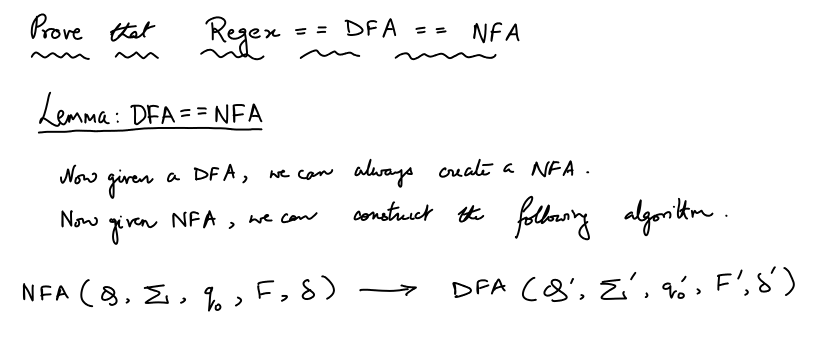 Prove that Regex == DFA == NFA
Lemma: DFA == NFA
Now given a DFA, we can always create a NFA.
Now given NFA, we can construct the following algorithm.
NFA (Q, Σ, q₀, F, δ) ⟶ DFA (Q', Σ', q₀', F', δ')